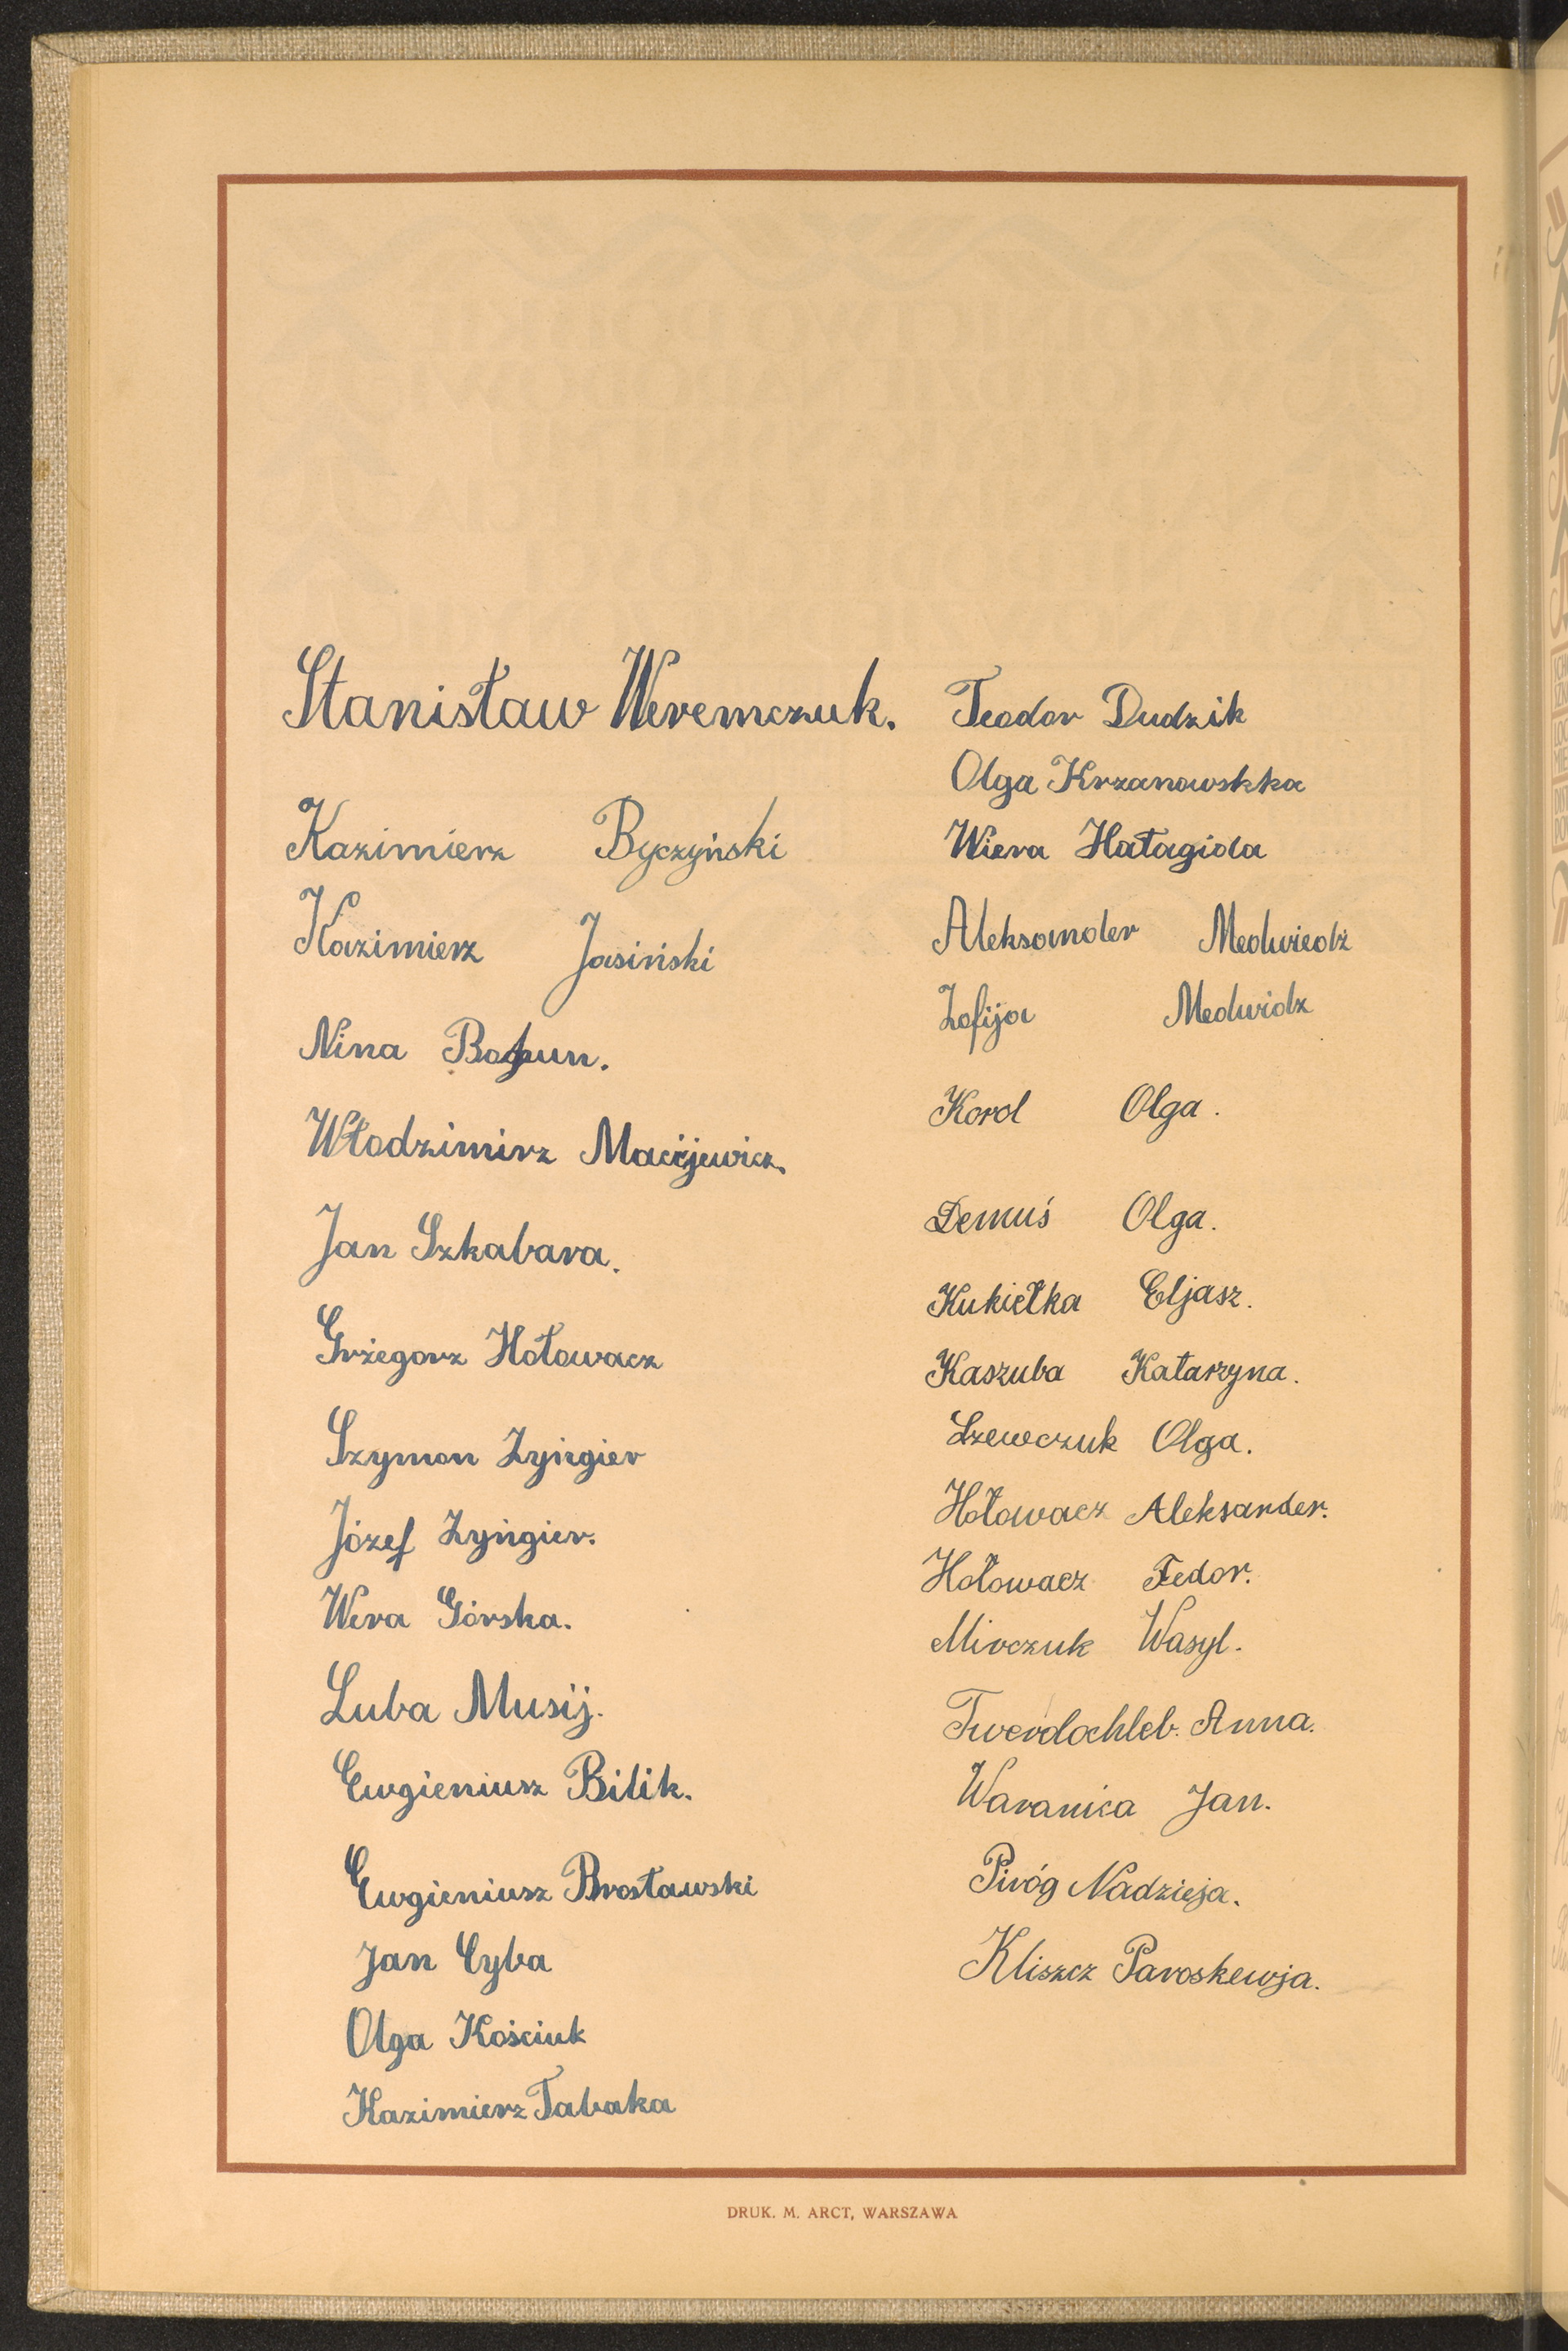 Stanisław Weremczuk.
Kazimierz Byczyński
Kazimierz Jasiński
Nina Bohun.
Włodzimirz Maciejewicz.
Jan Szkabara.
Grżegorz Hołowacz
Szymon Zyngier
Józef Zyngier.
Wera Górska.
Luba Musij.
Ewgieniusz Bilik.
Ewgieniusz Brosławski
Jan Cyba
Olga Kościuk
Kazimierz Tabaka
Teodor Dudzik
Olga Krzanowskka
Wiera Hałagida
Aleksander Medwiedź
Zofija Medwidz
Korol Olga.
Demuś Olga.
Kukiełka Eljasz.
Kaszuba Katarzyna.
Szewczuk Olga.
Hołowacz Aleksander.
Hołowacz Fedor.
Mirczuk Wasyl.
Twerdochleb. Anna.
Waranica Jan.
Piróg Nadzieja.
Kliszcz Paroskewja.
DRUK. M. ARCT, WARSZAWA